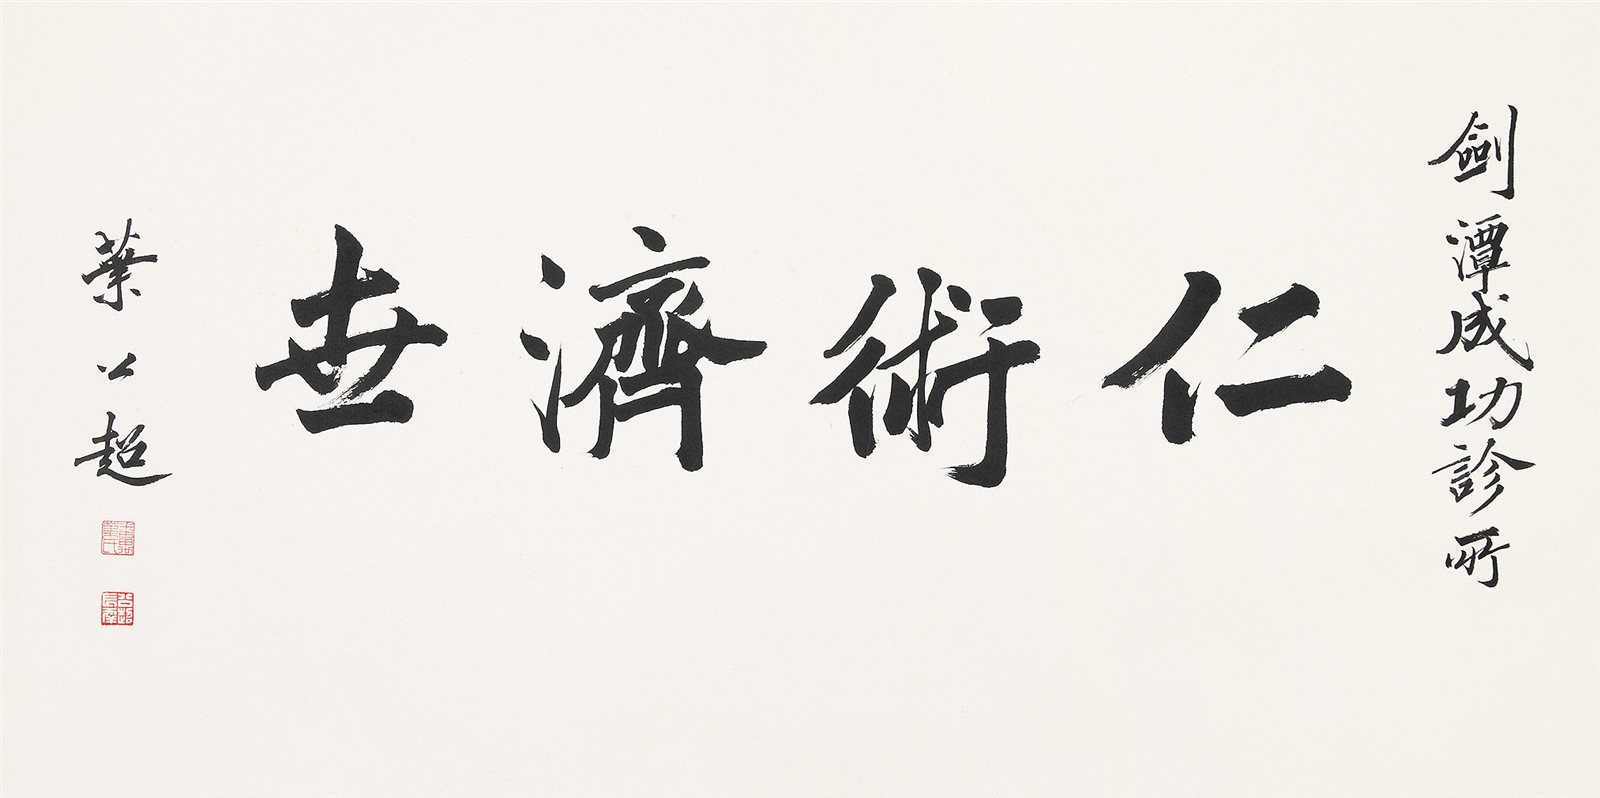 劍潭成功診所
仁術濟世
葉公超